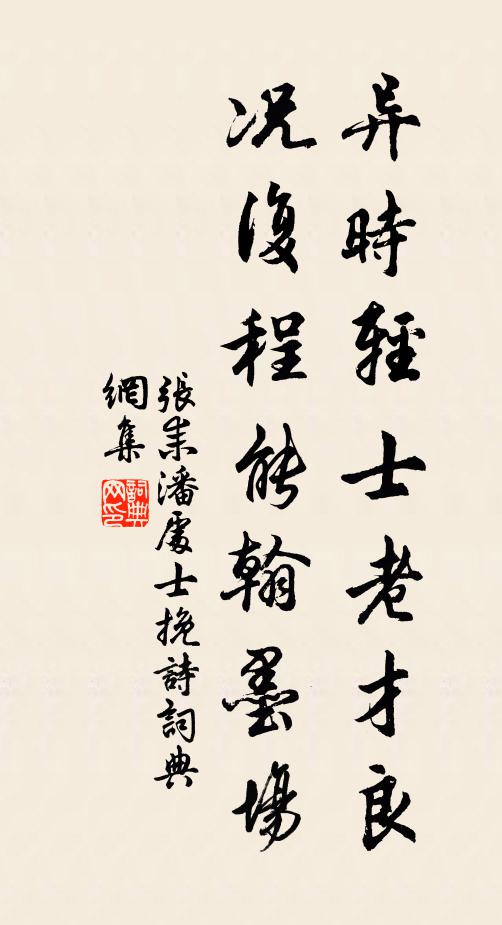 异時輕士老才良
况復程能翰墨場
張耒潘處士挽詩詞典
網集
詞典網印